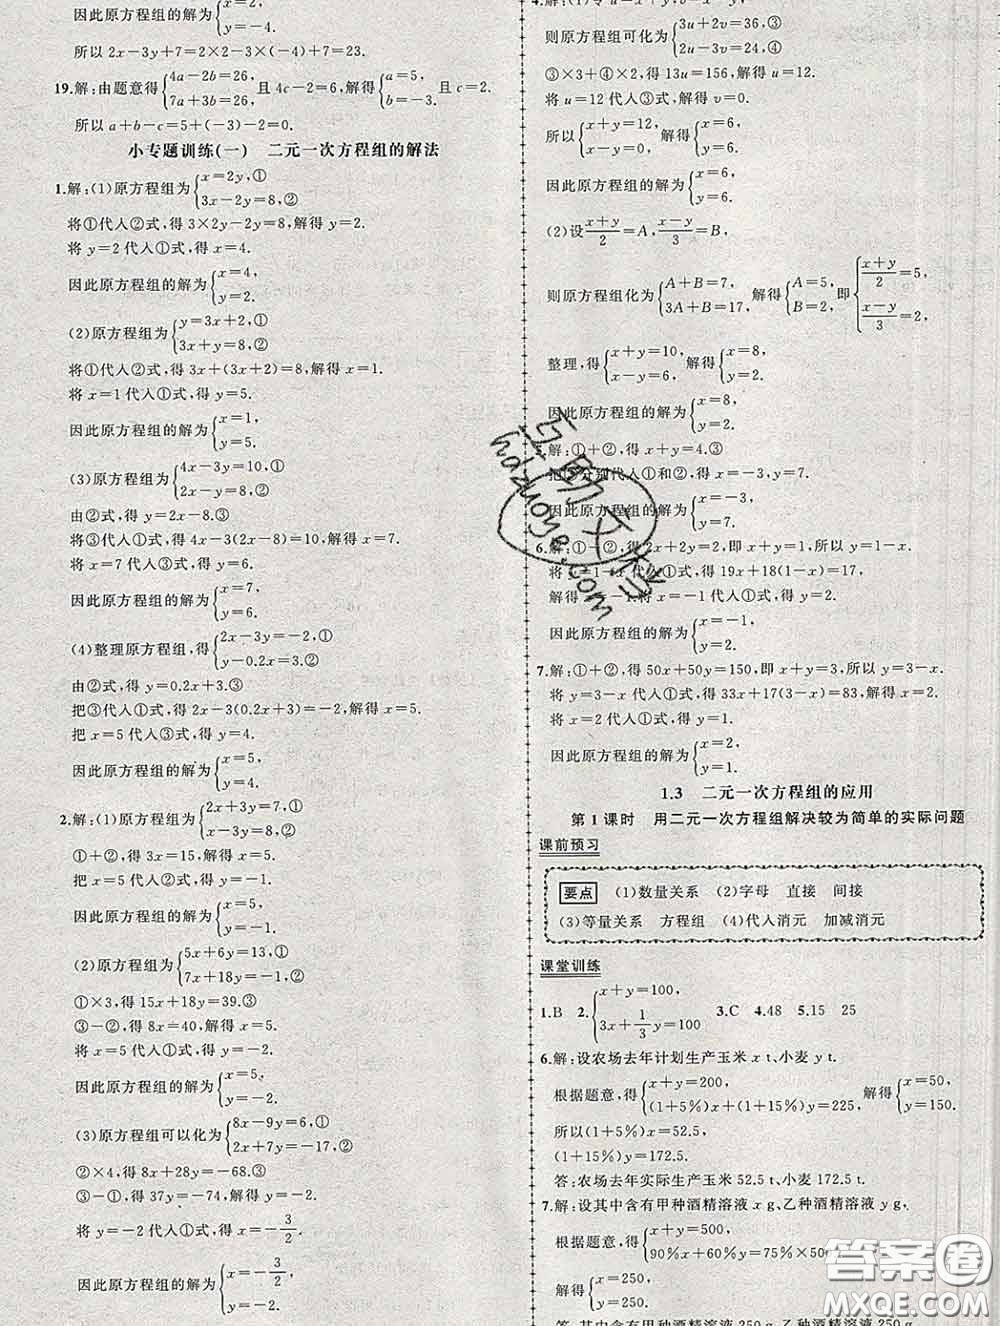 x=2,
因此原方程组的解为{
y=-4.
所以 2x-3y+7=2×2-3×(-4)+7=23.
19.解:由题意得{4a-2b=26, 7a+3b=26, 且 4c-2=6,解得{a=5, b=-3. 且 c=2.
所以 a+b-c=5+(-3)-2=0.
小专题训练(一) 二元一次方程组的解法
1.解:(1)原方程组为{x=2y,① 3x-2y=8,②
将①代人②式,得 3×2y-2y=8,解得 y=2.
将 y=2 代人①式,得 x=4.
因此原方程组的解为{x=4, y=2.
(2)原方程组为{y=3x+2,① 3x+y=8,②
将①代人②式,得 3x+(3x+2)=8,解得 x=1.
将 x=1 代人①式,得 y=5.
因此原方程组的解为{x=1, y=5.
(3)原方程组为{4x-3y=10,① 2x-y=8,②
由②式,得 y=2x-8.③
将③代人①式,得 4x-3(2x-8)=10,解得 x=7.
将 x=7 代人③式,得 y=6.
因此原方程组的解为{x=7, y=6.
(4)整理原方程组,得{2x-3y=-2,① y-0.2x=3.②
由②式,得 y=0.2x+3.③
把③代人①式,得 2x-3(0.2x+3)=-2,解得 x=5.
把 x=5 代人③式,得 y=4.
因此原方程组的解为{x=5, y=4.
2.解:(1)原方程组为{2x+3y=7,① x-3y=8.②
①+②,得 3x=15,解得 x=5.
把 x=5 代人①式,得 y=-1.
因此原方程组的解为{x=5, y=-1.
(2)原方程组为{5x+6y=13,① 7x+18y=-1.②
①×3,得 15x+18y=39.③
③-②,得 8x=40,解得 x=5.
将 x=5 代人①式,得 y=-2.
因此原方程组的解为{x=5, y=-2.
(3)原方程组可以化为{8x-9y=6,① 2x+7y=-17,②
②×4,得 8x+28y=-68.③
③-①,得 37y=-74,解得 y=-2.
将 y=-2 代人①式,得 x=-3/2.
因此原方程组的解为{x=-3/2, y=-2.
则原方程组可化为{3u+2v=36,③ 2u-3v=24,④
③×3+④×2,得 13u=156,解得 u=12.
将 u=12 代人③式,解得 v=0.
所以{x+y=12, x-y=0. 解得{x=6, y=6.
因此原方程组的解为{x=6, y=6.
(2)设(x+y)/2=A,(x-y)/3=B,
则原方程组化为{A+B=7, 3A+B=17, 解得{A=5, B=2, 即{(x+y)/2=5, (x-y)/3=2,
整理,得{x+y=10, x-y=6, 解得{x=8, y=2.
因此原方程组的解为{x=8, y=2.
解:①+②,得 x+y=4.③
把③分别代人①和②,得 x=-3,y=7.
因此原方程组的解为{x=-3, y=7.
6.解:①-②,得 2x+2y=2,即 x+y=1,所以 y=1-x.
将 y=1-x 代人①式,得 19x+18(1-x)=17.
解得 x=-1.将 x=-1 代人①式,得 y=2.
因此原方程组的解为{x=-1, y=2.
7.解:①+②,得 50x+50y=150,即 x+y=3,所以 y=3-x.
将 y=3-x 代人①式,得 33x+17(3-x)=83,解得 x=2.
将 x=2 代人①式,得 y=1.
因此原方程组的解为{x=2, y=1.
1.3 二元一次方程组的应用
第 1 课时 用二元一次方程组解决较为简单的实际问题
课前预习
要点 (1)数量关系 (2)字母 直接 间接
(3)等量关系 方程组 (4)代人消元 加减消元
课堂训练
1.B 2.{x+y=100, 3x+1/3y=100 3.C 4.48 5.15 25
6.解:设农场去年计划生产玉米 x t、小麦 y t.
根据题意,得{x+y=200, (1+5%)x+(1+15%)y=225, 解得{x=50, y=150.
所以(1+5%)x=52.5,
(1+15%)y=172.5.
答:农场去年实际生产玉米 52.5 t、小麦 172.5 t.
7.解:设其中含有甲种酒精溶液 x g,乙种酒精溶液 y g,
根据题意,得{x+y=500, 90%x+60%y=75%×500
解得{x=250, y=250.
hdzuoye.com
答案圈
MXQE.COM